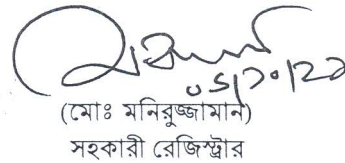 ০১/১০/২২
(মোঃ মনিরুজ্জামান)
সহকারী রেজিস্ট্রার